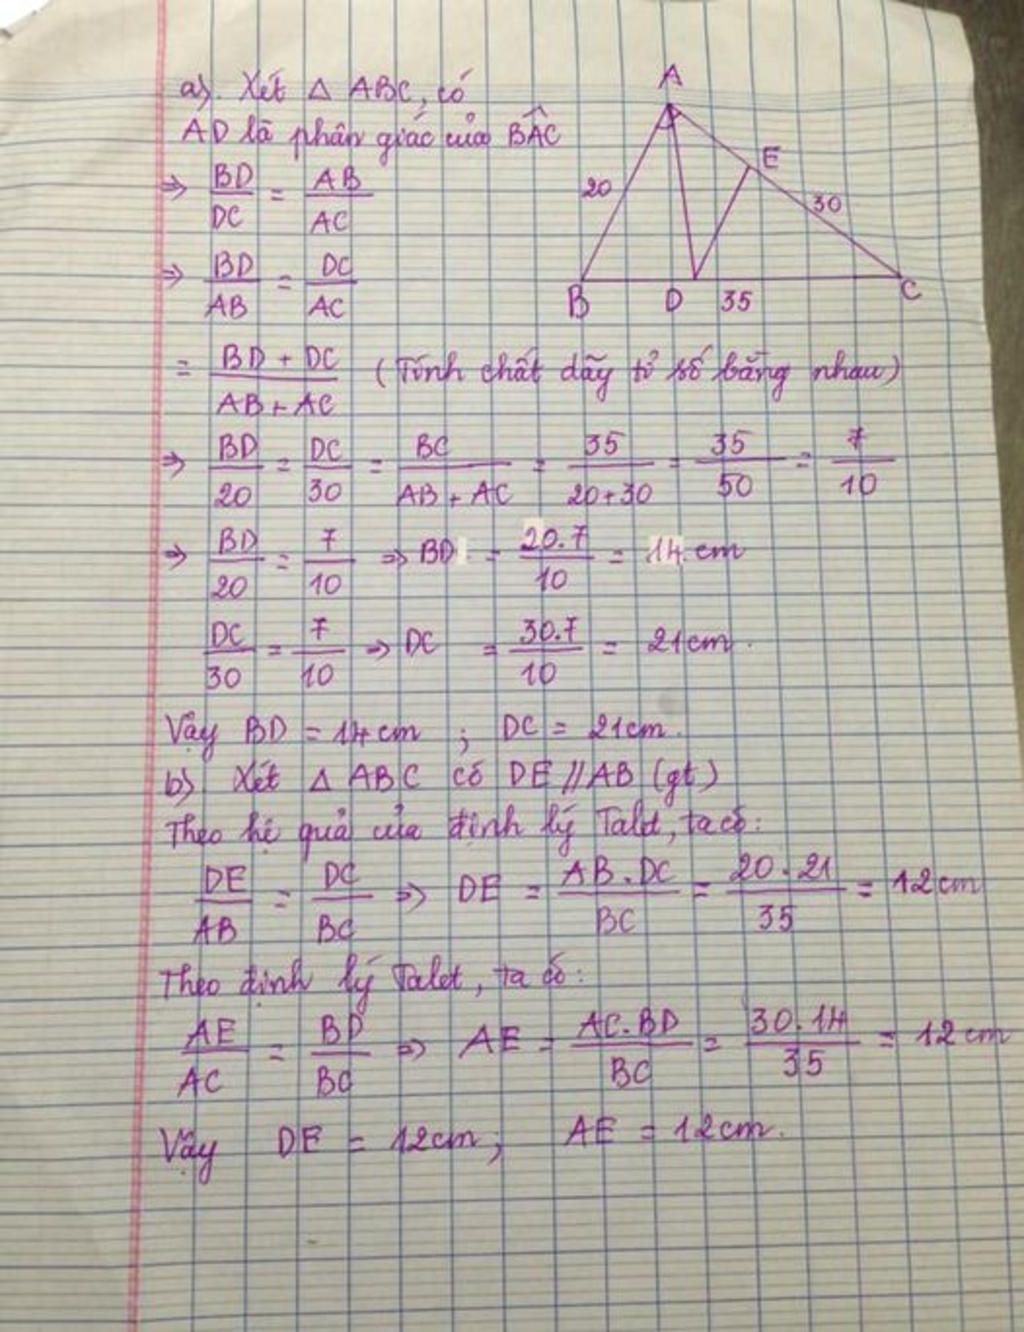 a). Xét △ ABC, có
AD là phân giác của BÂC
⇒ BD/DC = AB/AC
⇒ BD/AB = DC/AC
= BD + DC / AB + AC (Tính chất dãy tỉ số bằng nhau)
⇒ BD/20 = DC/30 = BC/AB + AC = 35/20+30 = 35/50 = 7/10
⇒ BD/20 = 7/10 ⇒ BD = 20.7/10 = 14 cm
DC/30 = 7/10 ⇒ DC = 30.7/10 = 21cm.
Vậy BD = 14cm ; DC = 21cm.
b) Xét △ ABC có DE // AB (gt)
Theo hệ quả của định lý Talet, ta có:
DE/AB = DC/BC ⇒ DE = AB.DC/BC = 20.21/35 = 12cm
Theo định lý Talet, ta có:
AE/AC = BD/BC ⇒ AE = AC.BD/BC = 30.14/35 = 12cm
Vậy DE = 12cm; AE = 12cm.
A
E
20
30
B D 35 C